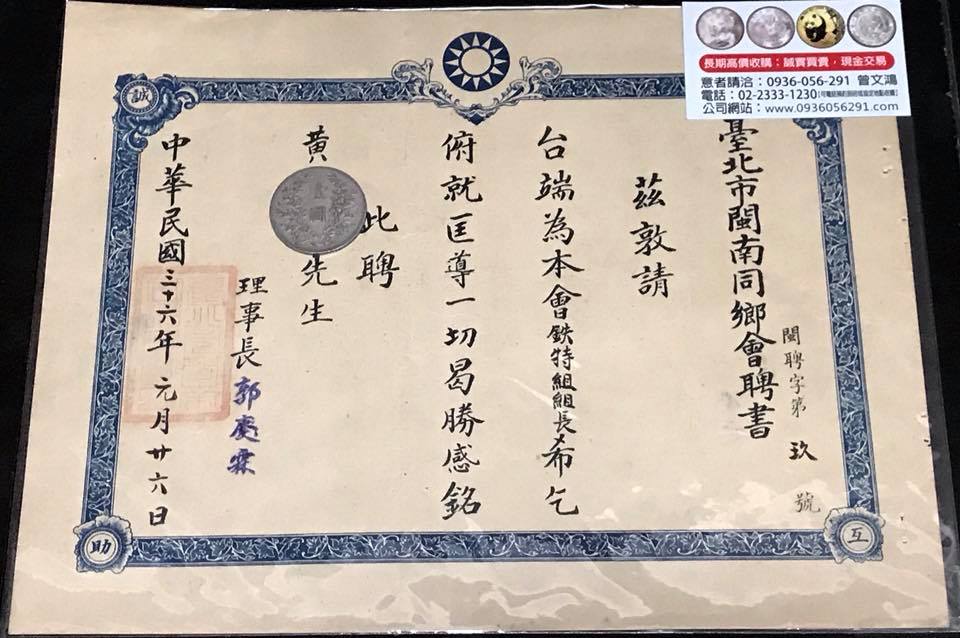 臺北市閩南同鄉會聘書
閩聘字第玖號
茲敦請
台端為本會鉄特組組長希乞
俯就匡導一切曷勝感銘
此聘
黃先生
理事長郭
中華民國三十六年元月廿六日
誠
互
助
壹圓
長期高價收購：誠實買賣，現金交易
意者請洽：0936-056-291 曾文鴻
電話：02-2333-1230
公司網站：www.0936056291.com